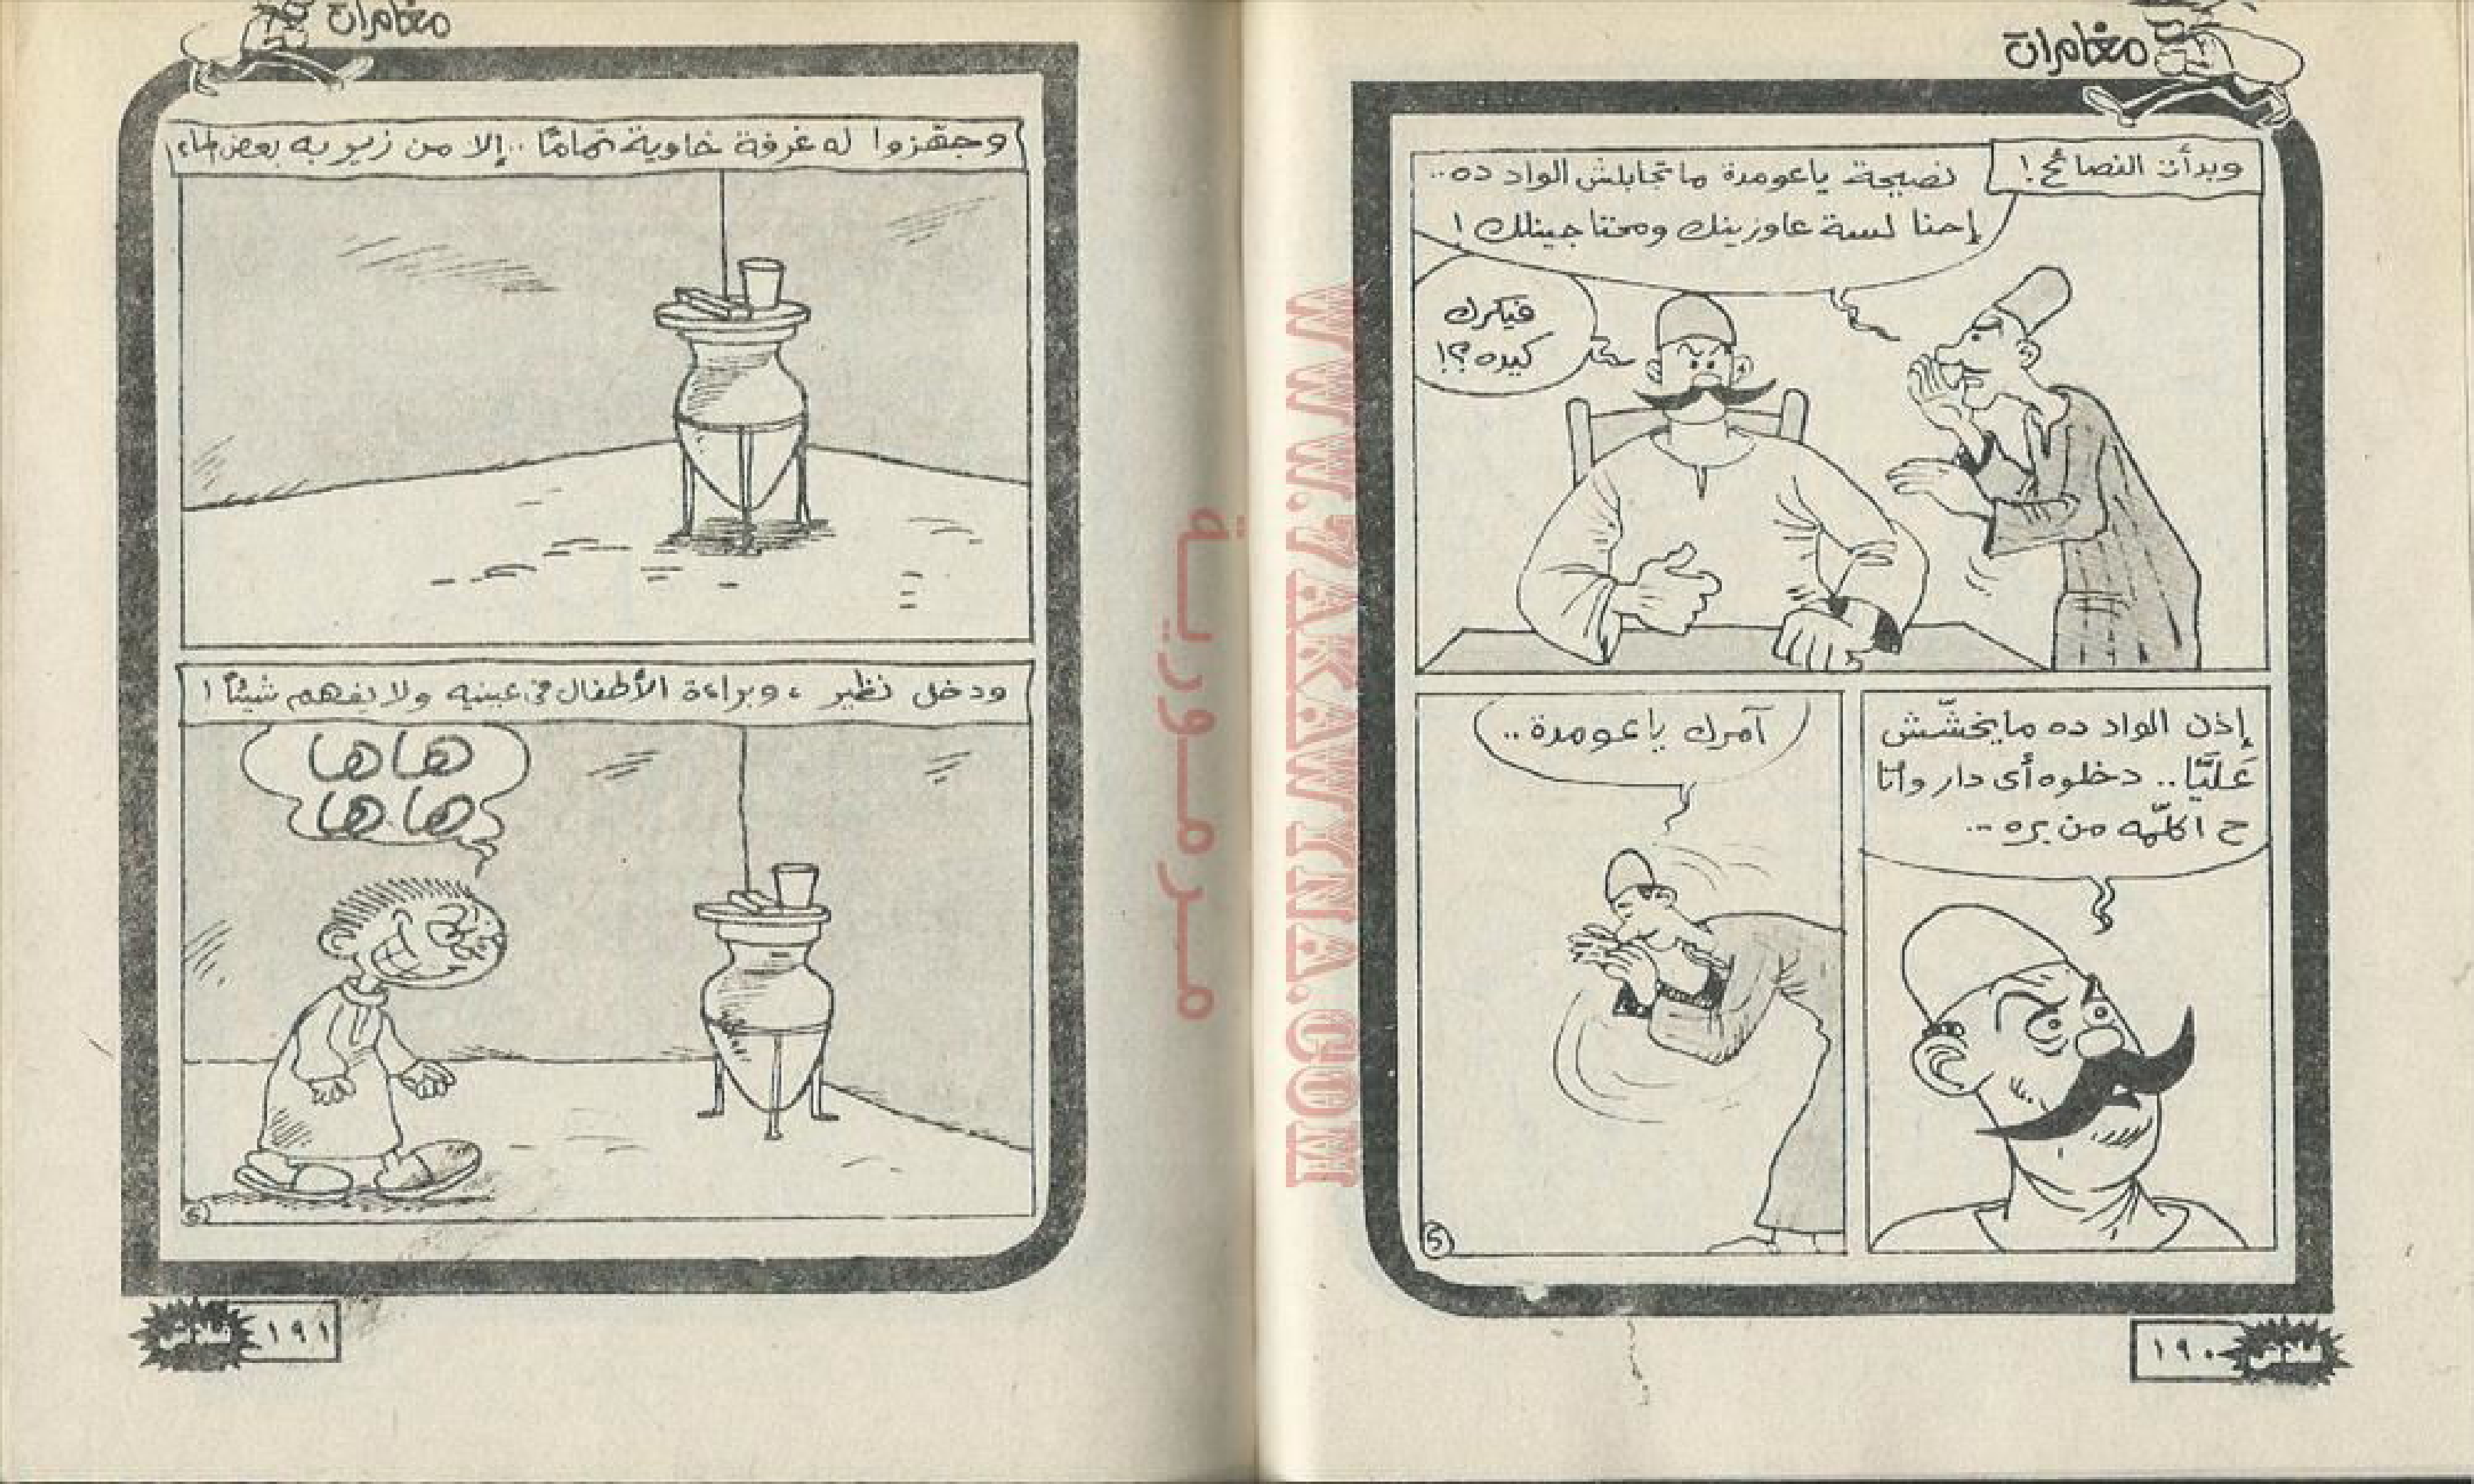 مغامرات
وبدأت النصائح!
نصيحة ياعومدة ماتجابلش الواد ده..
إحنا لسة عاوزينك ومحتاجينلك!
فيكرك
كيده؟!
إذن الواد ده مايخشّش
عَليَّا.. دخلوه أى دار وانا
ح اكلّمه من بره ...
آمرك ياعومدة ..
5
١٩٠
فلاش
مغامرات
وجهّزوا له غرفة خاوية تمامًا .. إلا من زير به بعض الماء
ودخل نظير ، وبراءة الأطفال فى عينيه ولا يفهم شيئًا!
هاها
هاها
6
١٩١
فلاش
مرمورية
WWW.7AKAWYNA.COM